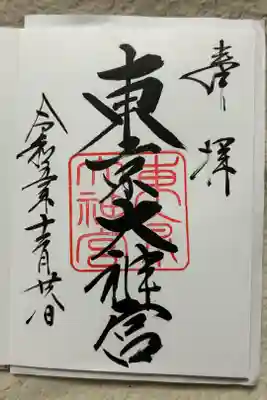 奉拝
東京大神宮
東京大神宮
令和五年十二月廿八日